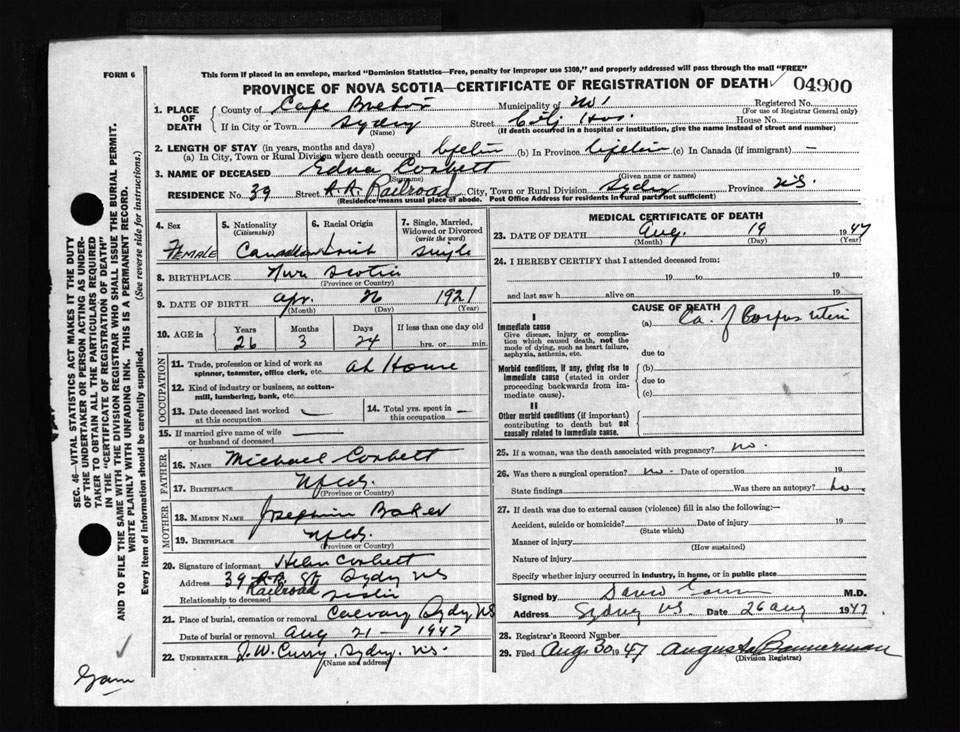 FORM 6
This form if placed in an envelope, marked "Dominion Statistics—Free, penalty for improper use $300," and properly addressed will pass through the mail "FREE"
PROVINCE OF NOVA SCOTIA—CERTIFICATE OF REGISTRATION OF DEATH 04900
1. PLACE OF DEATH
County of Cape Breton Municipality of No 1 Registered No.
(For use of Registrar General only)
If in City or Town Sydney Street City Hos. House No.
(Name) (If death occurred in a hospital or institution, give the name instead of street and number)
2. LENGTH OF STAY (in years, months and days)
(a) In City, Town or Rural Division where death occurred Lifetime (b) In Province Lifetime (c) In Canada (if immigrant) —
3. NAME OF DECEASED Edna Corbett
(Surname) (Given name or names)
RESIDENCE NO. 39 Street R.R. Railroad City, Town or Rural Division Sydney Province N.S.
(Residence means usual place of abode. Post Office Address for residents in rural parts not sufficient)
4. Sex Female
5. Nationality (Citizenship) Canadian
6. Racial Origin Irish
7. Single, Married, Widowed or Divorced (write the word) Single
8. BIRTHPLACE Nova Scotia
(Province or Country)
9. DATE OF BIRTH Apr. 26 1921
(Month) (Day) (Year)
10. AGE in Years 26 Months 3 Days 24 If less than one day old hrs. or min.
OCCUPATION
11. Trade, profession or kind of work as spinner, teamster, office clerk, etc. At Home
12. Kind of industry or business, as cotton-mill, lumbering, bank, etc.
13. Date deceased last worked at this occupation —
14. Total yrs. spent in this occupation —
15. If married give name of wife or husband of deceased —
FATHER
16. NAME Michael Corbett
17. BIRTHPLACE Nfld.
(Province or Country)
MOTHER
18. MAIDEN NAME Josephine Baker
19. BIRTHPLACE Nfld.
(Province or Country)
20. Signature of informant Helen Corbett
Address 39 R.R. St Sydney N.S
Railroad
Relationship to deceased Sister
21. Place of burial, cremation or removal Calvary Sydney NS
Date of burial or removal Aug 21 — 1947
22. UNDERTAKER J.W. Curry. Sydney. N.S.
(Name and address)
MEDICAL CERTIFICATE OF DEATH
23. DATE OF DEATH Aug. 19 1947
(Month) (Day) (Year)
24. I HEREBY CERTIFY that I attended deceased from:
19 to 19
and last saw h alive on 19
CAUSE OF DEATH
I
Immediate cause
Give disease, injury or complication which caused death, not the mode of dying, such as heart failure, asphyxia, asthenia, etc.
(a) Ca. of Corpus uteri
due to
Morbid conditions, if any, giving rise to immediate cause (stated in order proceeding backwards from immediate cause).
(b)
due to
(c)
II
Other morbid conditions (if important) contributing to death but not causally related to immediate cause.
25. If a woman, was the death associated with pregnancy? no.
26. Was there a surgical operation? no. Date of operation 19
State findings Was there an autopsy? no.
27. If death was due to external causes (violence) fill in also the following:—
Accident, suicide or homicide? Date of injury 19
(State which)
Manner of injury
(How sustained)
Nature of injury
Specify whether injury occurred in industry, in home, or in public place
Signed by David M.D.
Address Sydney N.S. Date 26 Aug 1947
28. Registrar's Record Number
29. Filed Aug 30 1947 Augusta Bannerman
(Division Registrar)
SEC. 46—VITAL STATISTICS ACT MAKES IT THE DUTY
OF THE UNDERTAKER OR PERSON ACTING AS UNDER-
TAKER TO OBTAIN ALL THE PARTICULARS REQUIRED
IN THE "CERTIFICATE OF REGISTRATION OF DEATH"
AND TO FILE THE SAME WITH THE DIVISION REGISTRAR WHO SHALL ISSUE THE BURIAL PERMIT.
WRITE PLAINLY WITH UNFADING INK. THIS IS A PERMANENT RECORD.
Every item of information should be carefully supplied. (See reverse side for instructions.)